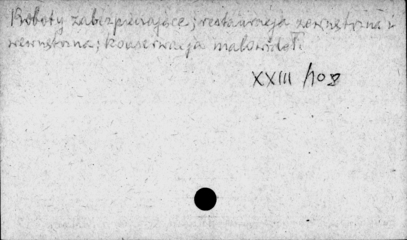 Roboty zabezpieczające, restauracja zewnętrzna i
wewnętrzna; konserwacja malowideł
XXIII